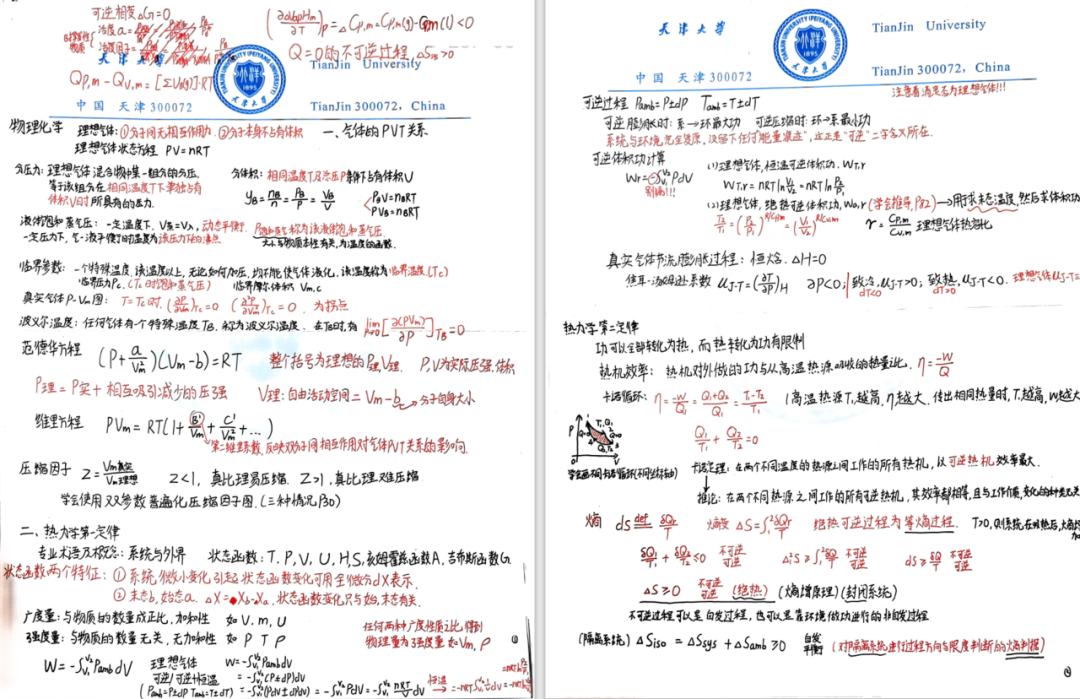 可逆相变△G=0
(∂△vapHm/∂T)p=△Cp,m=Cp,m(g)-Cp,m(l)<0
Q=0的不可逆过程,△Siso>0
天津大学
TianJin University
Qp,m-Qv,m=[ΣUB(g)]·RT
中国 天津 300072
TianJin 300072, China
物理化学 理想气体:①分子间无相互作用力 ②分子本身不占有体积 一、气体的PVT关系
理想气体状态方程 PV=nRT
分压力:理想气体混合物中某一组分的分压,
等于该组分在相同温度T下单独占有
体积V时所具有的压力.
分体积:相同温度T及总压P条件下占有体积V
yB=nB/n=PB/P=VB/V
PBV=nBRT
PVB=nBRT
液体饱和蒸气压:一定温度下,动态平衡. 称为该液体饱和蒸气压.
大小与物质本性有关,为温度的函数.
一定压力下,气-液平衡时的温度为该压力下的沸点
临界参数:一个特殊温度.该温度以上,无论如何加压,均不能使气体液化.该温度称为临界温度(Tc)
临界压力Pc.(Tc时饱和蒸气压) 临界摩尔体积 Vm,c
真实气体P-Vm图: T=Tc时,(∂P/∂Vm)Tc=0 (∂²P/∂Vm²)Tc=0 为拐点
波义尔温度:任何气体有一个特殊温度TB,称为波义尔温度,在TB时,有 lim P→0[∂(PVm)/∂P]TB=0
范德华方程 (P+a/Vm²)(Vm-b)=RT 整个括号为理想的P理V理 P,V为实际压强.体积
P理=P实+相互吸引减少的压强 V理:自由活动空间=Vm-b→分子自身大小
维里方程 PVm=RT(1+B'/Vm+C'/Vm²+...)
第二维里系数,反映双分子间相互作用对气体PVT关系的影响
压缩因子 Z=Vm真实/Vm理想 Z<1,真比理易压缩 Z>1,真比理难压缩
学会使用双参数普遍化压缩因子图.(三种情况P30)
二、热力学第一定律
专业术语及概念:系统与外界 状态函数:T,P,V,U,H,S,亥姆霍兹函数A,吉布斯函数G
状态函数两个特征:①系统微小变化引起状态函数变化可用全微分dX表示.
②末态b,始态a △X=Xb-Xa.状态函数变化只与始,末态有关.
广度量:与物质的数量成正比,加和性 如V,m,U
强度量:与物质的数量无关,无加和性 如P T ρ
任何两种广度性质之比得到
物理量为强度量如Vm,ρ
W=-∫V1V2PambdV 理想气体 W=-∫V1V2PambdV
可逆/可逆+恒温 =-∫V1V2(P±dP)dV
(Pamb=P±dP Tamb=T±dT) =-∫V1V2(PdV±dPdV)=-∫V1V2PdV=-∫V1V2 nRT/V dV 恒温
天津大学
TianJin University
中国 天津 300072
TianJin 300072, China
注意看清是否为理想气体!!!
可逆过程 Pamb=P±dP Tamb=T±dT
可逆膨胀时:系→环最大功 可逆压缩时:环→系最小功
系统与环境完全复原,没留下任何"能量痕迹",这正是"可逆"二字含义所在.
可逆体积功计算
Wr=-∫V1V2PdV
别漏!!!
(1)理想气体,恒温可逆体积功,WT,r
WT,r=nRTlnV1/V2=nRTlnP2/P1
(2)理想气体,绝热可逆体积功,Wa,r(学会推导,P62)→用求末态温度,然后求体积功
T2/T1=(P2/P1)^R/Cp,m=(V1/V2)^R/Cv,m γ=Cp,m/Cv,m 理想气体热容比
真实气体节流膨胀过程:恒焓,△H=0
焦耳-汤姆逊系数 μJ-T=(∂T/∂P)H ∂P<0;致冷,μJ-T>0;致热,μJ-T<0.理想气体μJ-T=
dT<0 dT>0
热力学第二定律
功可以全部转化为热,而热转化为功有限制
热机效率:热机对外做的功与从高温热源吸收的热量之比,η=-W/Q
卡诺循环:η=-W/Q1=Q1+Q2/Q1=T1-T2/T1 (高温热源T1越高,η越大.传出相同热量时,T越高,W越大
Q1/T1+Q2/T2=0
卡诺定理:在两个不同温度的热源之间工作的所有热机,以可逆热机效率最大.
推论:在两个不同热源之间工作的所有可逆热机,其效率都相等,且与工作介质,变化的种类无关
熵 dS def δQr/T 熵变△S=∫12δQr/T 绝热可逆过程为等熵过程. T>0,
δQ1/T1+δQ2/T2≤0 不可逆 可逆 △12S≥∫12δQ/T 不可逆 可逆 dS≥δQ/T 不可逆 可逆
△S≥0 不可逆 可逆 (绝热) (熵增原理)(封闭系统)
不可逆过程可以是自发过程,也可以是靠环境做功进行的非自发过程
(隔离系统)△Siso=△Ssys+△Samb≥0 自发 平衡 (对隔离系统进行过程方向与限度判断的熵判据)